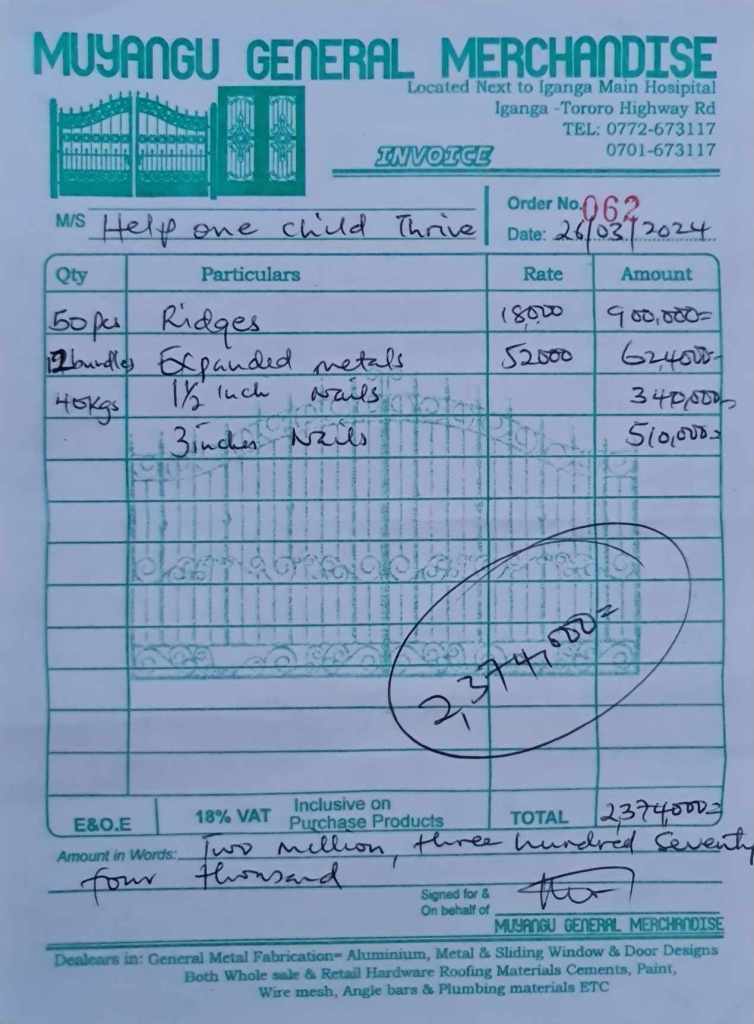 MUYANGU GENERAL MERCHANDISE
Located Next to Iganga Main Hosipital
Iganga -Tororo Highway Rd
TEL: 0772-673117
0701-673117
INVOICE
Order No. 062
M/S Help one child Thrive
Date: 26/03/2024
Qty Particulars Rate Amount
50 pcs Ridges 18,000 900,000=
12 bundles Expanded metals 52000 624000=
40kgs 1½ Inch Nails 340,000=
3 inches Nails 510,000=
2,374,000=
E&O.E 18% VAT Inclusive on Purchase Products TOTAL 2,374000=
Amount in Words: Two million, three hundred Seventy
four thousand
Signed for &
On behalf of
MUYANGU GENERAL MERCHANDISE
Dealears in: General Metal Fabrication= Aluminium, Metal & Sliding Window & Door Designs
Both Whole sale & Retail Hardware Roofing Materials Cements, Paint,
Wire mesh, Angle bars & Plumbing materials ETC